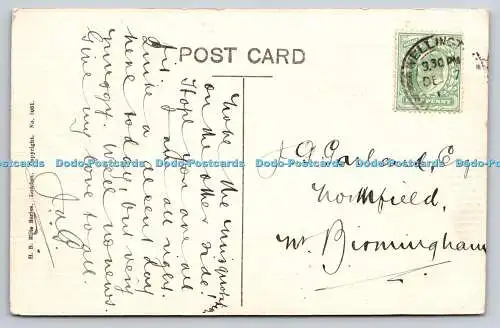 POST CARD
WELLINGT
3.30 PM
DE
PENNY
H. B. Series, London. Copyright. No. 
"Note the misquote
on the other side!"
Hope you are all
all right.
Quite a decent day
here today, but very
muggy. No news.
Give my love to all.
J.A.G.
J.A. Garland, Esq
Northfield,
nr. Birmingham
Dodo-Postcards Dodo-Postcards Dodo-Postcards Dodo-Postcards Dodo-Postcards Dodo-Postcards